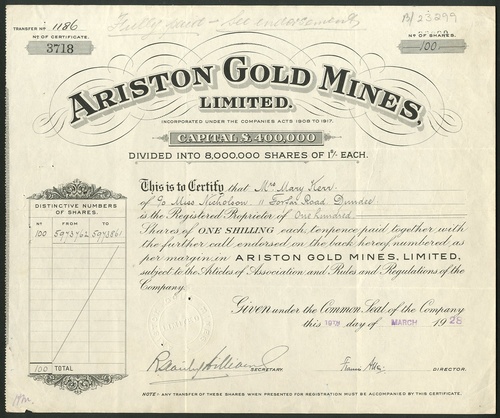 Fully paid - See endorsement
B/23299
TRANSFER Nº 1186
Nº OF CERTIFICATE.
3718
Nº OF SHARES.
100
ARISTON GOLD MINES,
LIMITED.
INCORPORATED UNDER THE COMPANIES ACTS 1908 TO 1917.
CAPITAL £400,000
DIVIDED INTO 8,000,000 SHARES OF 1/- EACH.
This is to Certify that Mrs Mary Kerr
of c/o Miss Nicholson 11 Forfar Road Dundee
is the Registered Proprietor of One hundred
Shares of ONE SHILLING each, tenpence paid together with
the further call endorsed on the back hereof, numbered, as
per margin, in ARISTON GOLD MINES, LIMITED,
subject to the Articles of Association and Rules and Regulations of the
Company.
DISTINCTIVE NUMBERS
OF SHARES.
Nº FROM TO
100 5973762 5973861
100 TOTAL
Given under the Common Seal of the Company
this 19TH day of MARCH 1928
SECRETARY.
DIRECTOR.
NOTE - ANY TRANSFER OF THESE SHARES WHEN PRESENTED FOR REGISTRATION MUST BE ACCOMPANIED BY THIS CERTIFICATE.